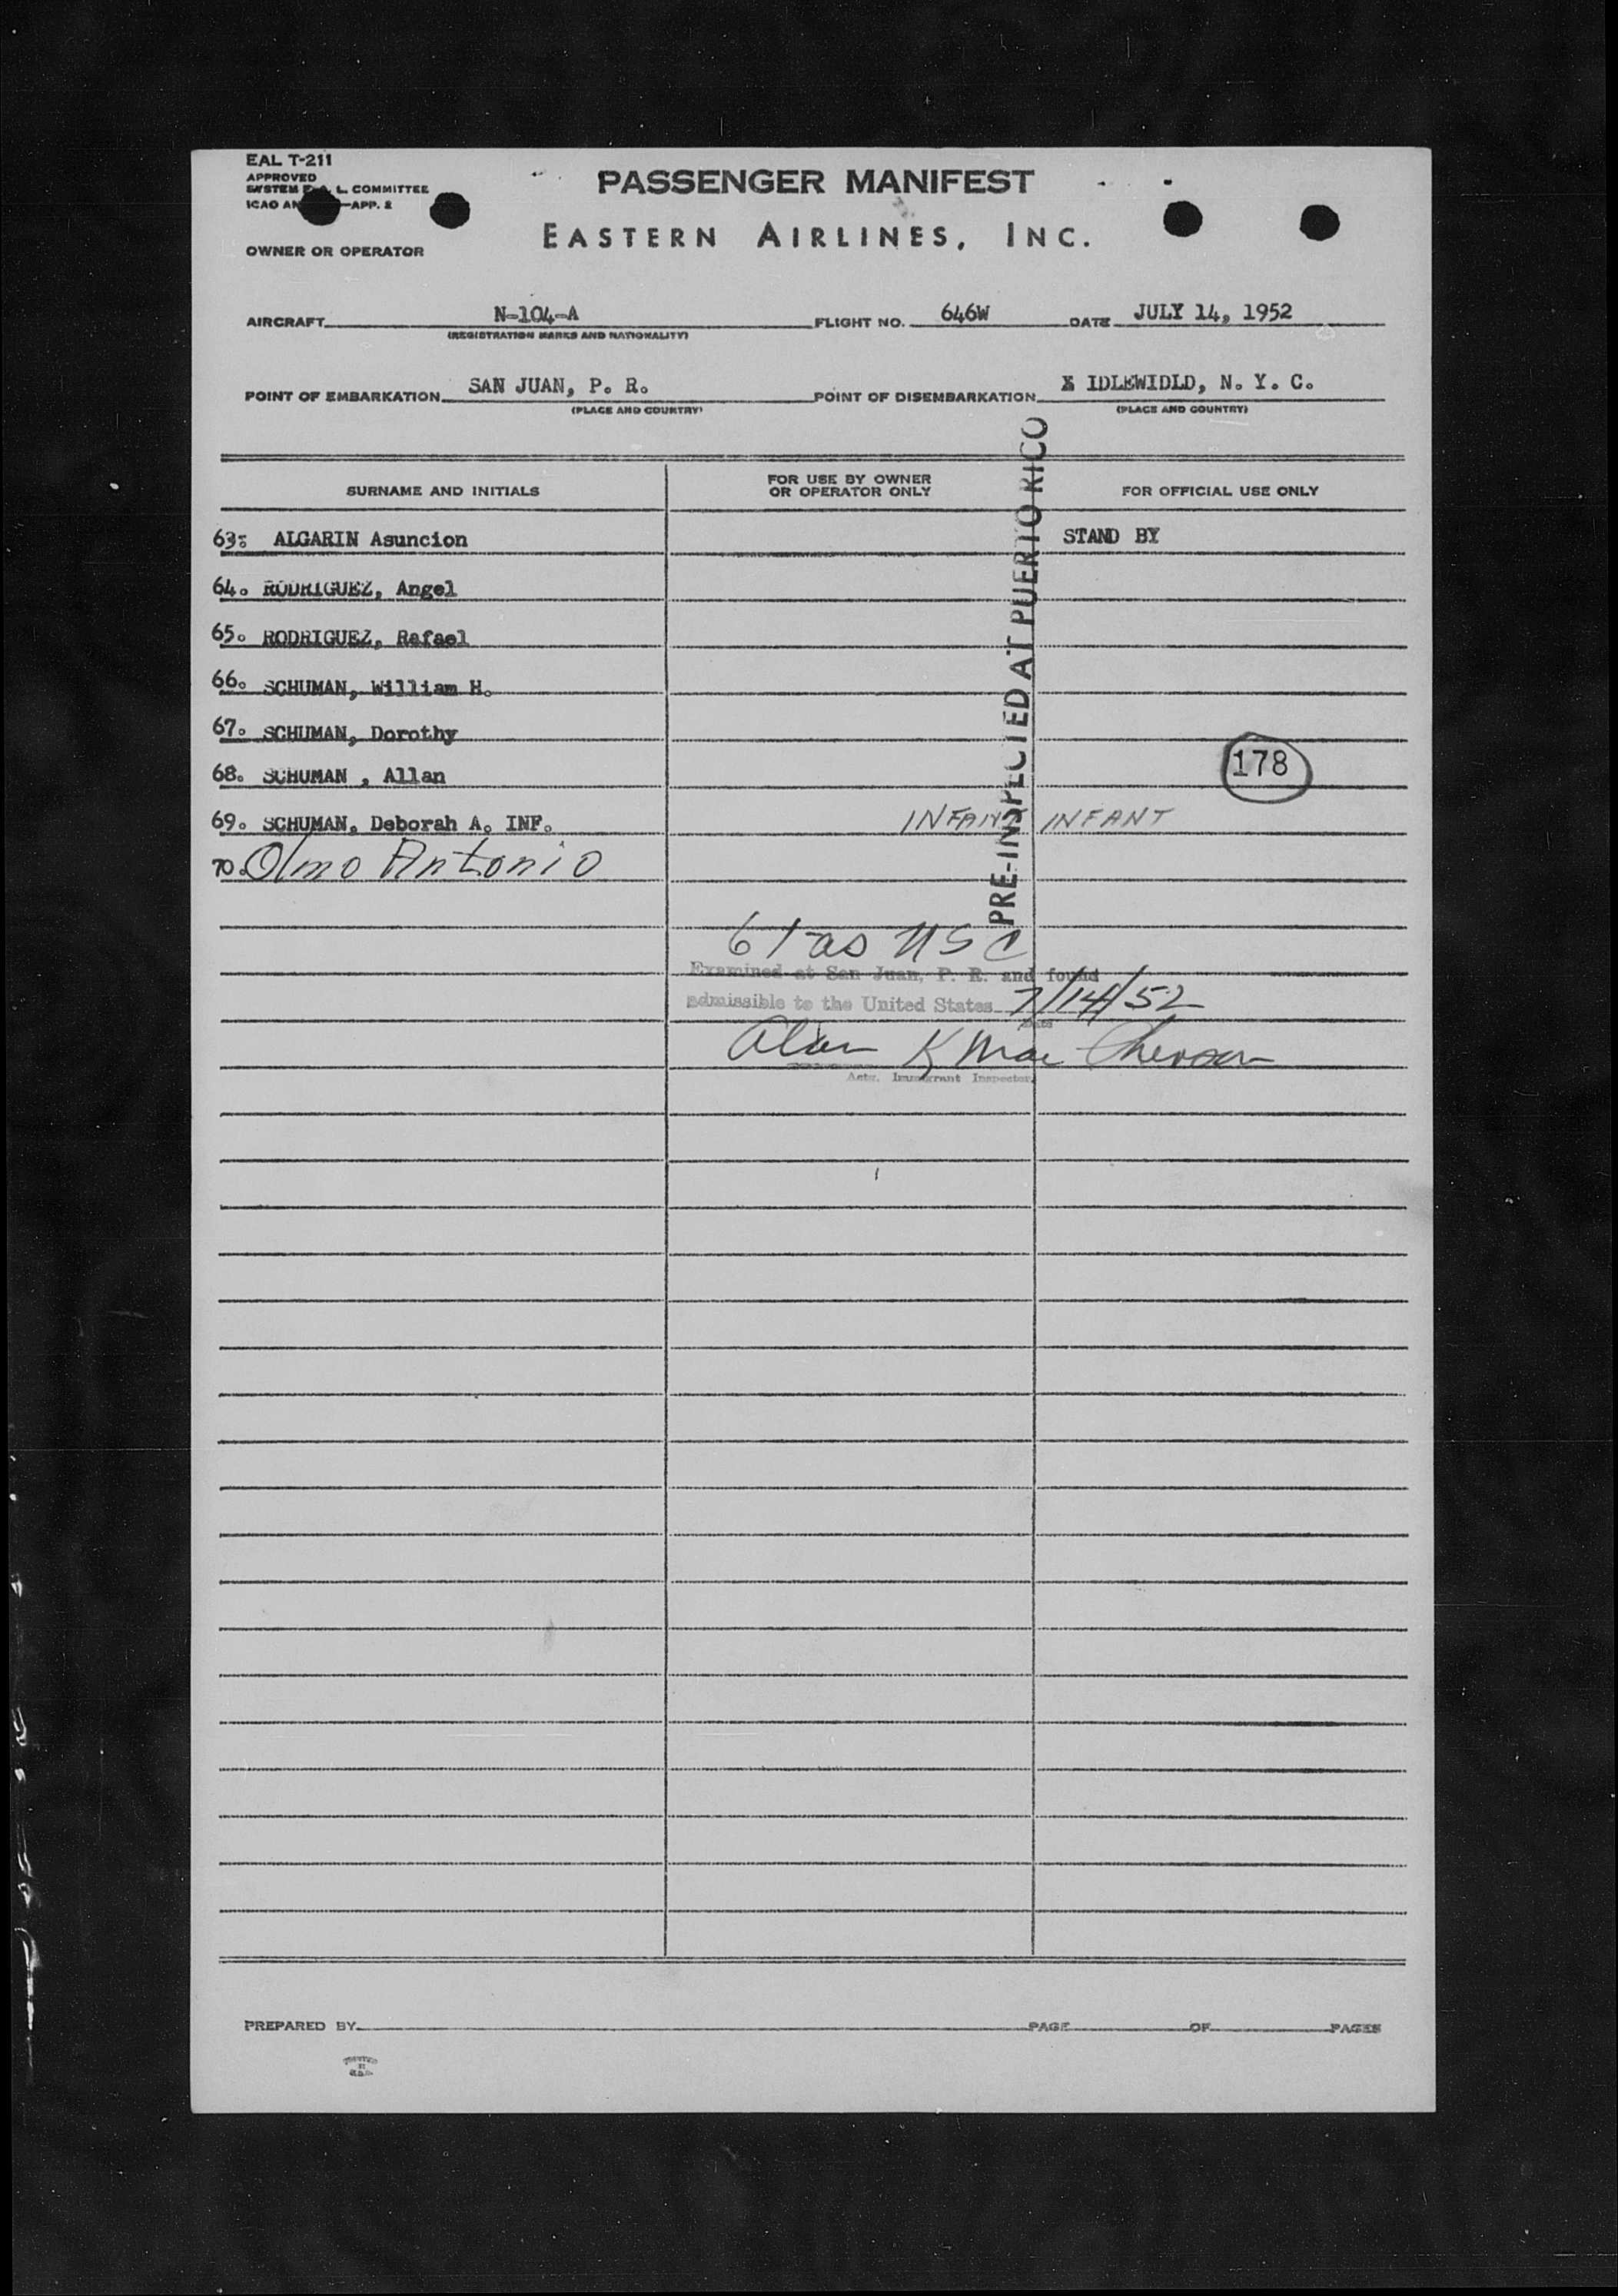 EAL T-211
APPROVED
SYSTEM L. COMMITTEE
ICAO AN —APP. 2
PASSENGER MANIFEST
EASTERN AIRLINES, INC.
OWNER OR OPERATOR
AIRCRAFT N-104-A FLIGHT NO. 646W DATE JULY 14, 1952
(REGISTRATION MARKS AND NATIONALITY)
POINT OF EMBARKATION SAN JUAN, P. R. POINT OF DISEMBARKATION X IDLEWIDLD, N. Y. C.
(PLACE AND COUNTRY) (PLACE AND COUNTRY)
SURNAME AND INITIALS FOR USE BY OWNER OR OPERATOR ONLY FOR OFFICIAL USE ONLY
PRE-INSPECTED AT PUERTO RICO
63: ALGARIN Asuncion STAND BY
64. RODRIGUEZ, Angel
65. RODRIGUEZ, Rafael
66. SCHUMAN, William H.
67. SCHUMAN, Dorothy
68. SCHUMAN , Allan
178
69. SCHUMAN, Deborah A. INF. INFANT INFANT
70. Olmo Antonio
61 as USC
Examined at San Juan, P. R. and found
admissible to the United States 7/14/52
Date
Alan K Mac Pherson
Actg. Immigrant Inspector
PREPARED BY PAGE OF PAGES